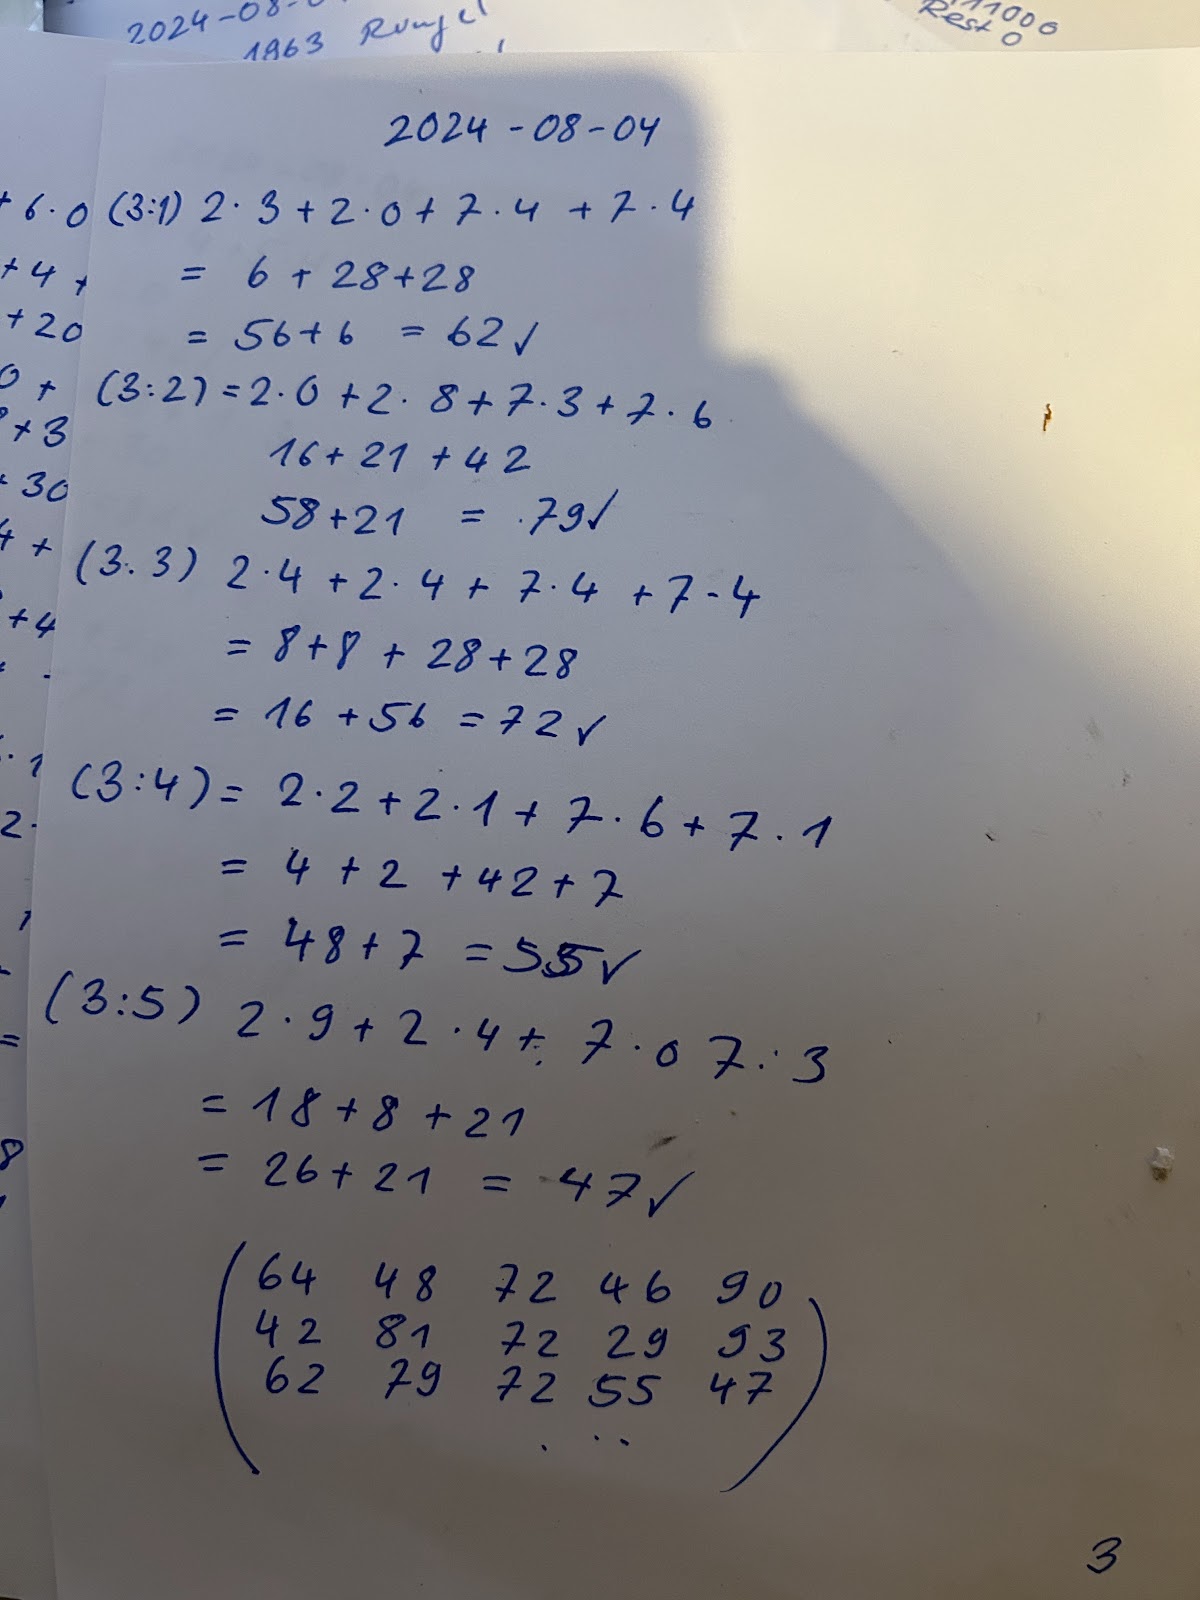 2024-08-0
1963 Runge
11000
Rest 0
2024-08-04
+ 6·0
+4 +
+20
0 +
+3
+30
4 +
+4
·1
2·
=
8
(3:1) 2·3+2·0+7·4+7·4
= 6+28+28
= 56+6 = 62✓
(3:2) = 2·0+2·8+7·3+7·6
16+21+42
58+21 = 79✓
(3.3) 2·4+2·4+7·4+7·4
= 8+8+28+28
= 16+56 = 72✓
(3:4) = 2·2+2·1+7·6+7·1
= 4+2+42+7
= 48+7 = 55✓
(3:5) 2·9+2·4+7·0 7·3
= 18+8+21
= 26+21 = 47✓
64 48 72 46 90
42 81 72 29 93
62 79 72 55 47
...
3